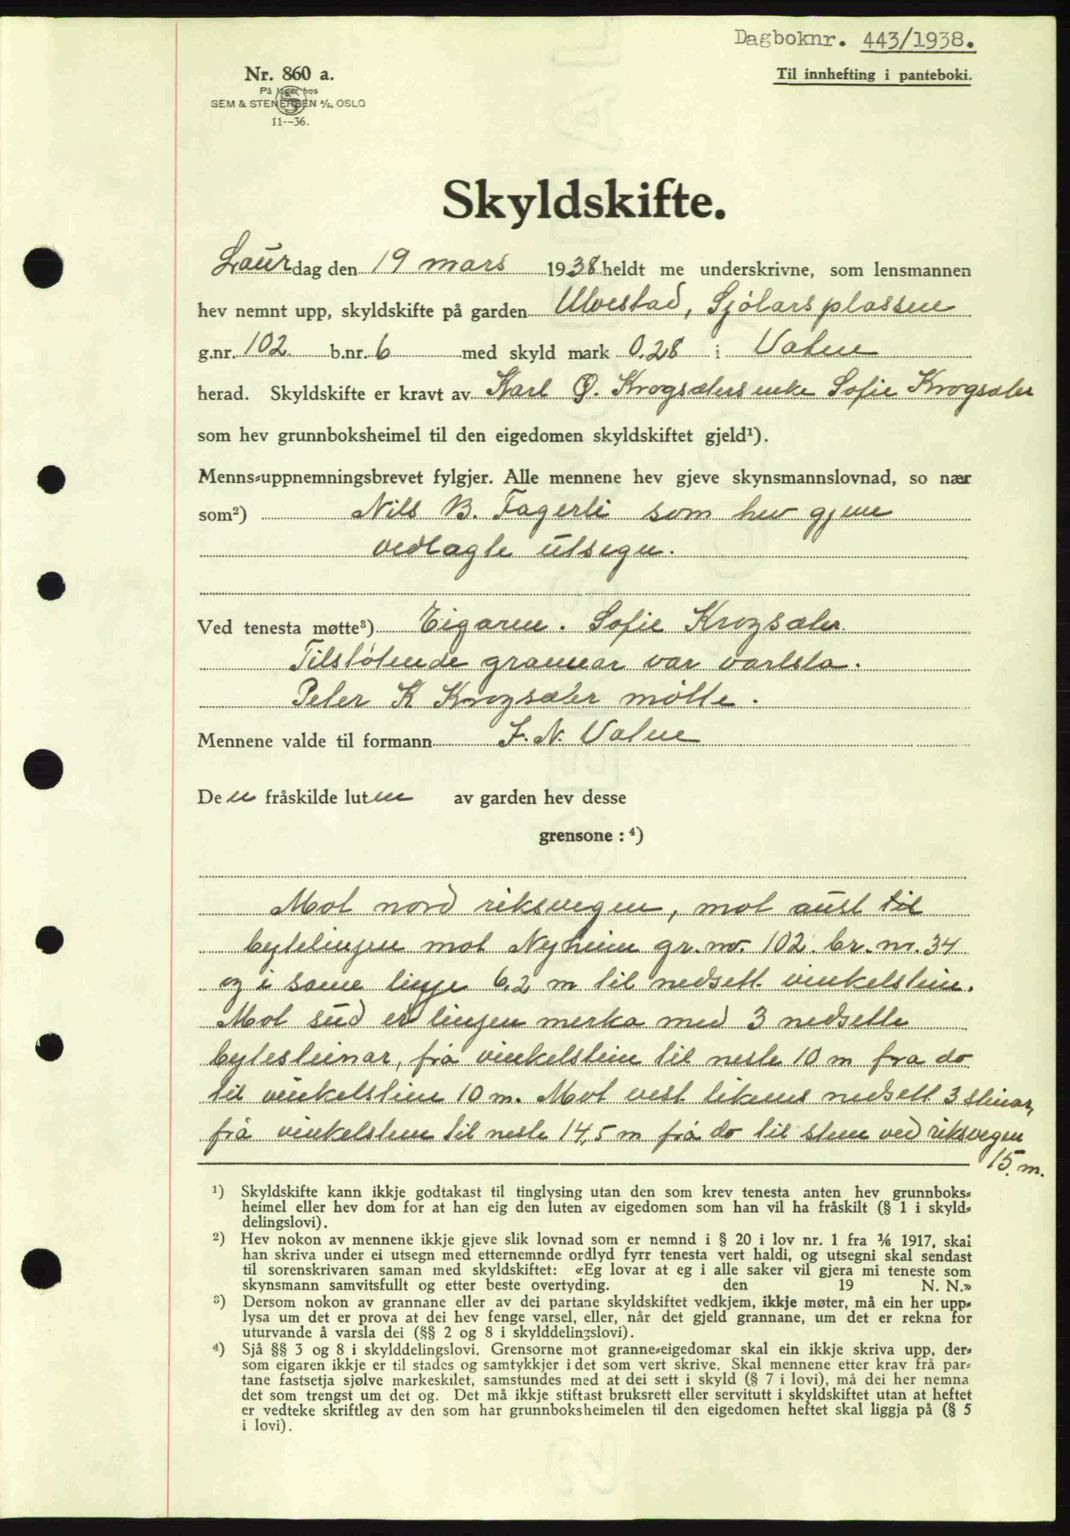 Dagboknr. 443/1938.
Til innhefting i panteboki.
Nr. 860 a.
På lager hos
SEM & STENERSEN A/S, OSLO
11--36.
Skyldskifte.
Laurdag den 19 mars 1938 heldt me underskrivne, som lensmannen
hev nemnt upp, skyldskifte på garden Ulvestad, Sjölarsplassen
g.nr. 102 b.nr. 6 med skyld mark 0.28 i Vatne
herad. Skyldskifte er kravt av Karl O. Krogsæters enke Sofie Krogsæter
som hev grunnboksheimel til den eigedomen skyldskiftet gjeld¹).
Menns-uppnemningsbrevet fylgjer. Alle mennene hev gjeve skynsmannslovnad, so nær
som²) Nils B. Fagerli som hev gjeve
vedlagte utsegn.
Ved tenesta møtte³) Eigaren. Sofie Krogsæter.
Tilstøtende grannar var varsla.
Peter K Krogsæter møtte.
Mennene valde til formann J. N. Vatne
Den fråskilde luten av garden hev desse
grensone : ⁴)
Mot nord riksvegen, mot aust til
bytelinjen mot Nyheim gr. nr. 102 br. nr. 34
og i same linje 6,2 m til nedsett vinkelstein.
Mot sud er linjen merka med 3 nedsette
bytesteinar, frå vinkelstein til neste 10 m fra do
til vinkelstein 10 m. Mot vest likeens nedsett 3 steinar,
frå vinkelstein til neste 14,5 m frå do til stein ved riksvegen
15. m.
¹) Skyldskifte kann ikkje godtakast til tinglysing utan den som krev tenesta anten hev grunnboks-
heimel eller hev dom for at han eig den luten av eigedomen som han vil ha fråskilt (§ 1 i skyld-
delingslovi).
²) Hev nokon av mennene ikkje gjeve slik lovnad som er nemnd i § 20 i lov nr. 1 fra ⅙ 1917, skal
han skriva under ei utsegn med etternemnde ordlyd fyrr tenesta vert haldi, og utsegni skal sendast
til sorenskrivaren saman med skyldskiftet: «Eg lovar at eg i alle saker vil gjera mi teneste som
skynsmann samvitsfullt og etter beste overtyding. den 19 N. N.»
³) Dersom nokon av grannane eller av dei partane skyldskiftet vedkjem, ikkje møter, må ein her upp-
lysa um det er prova at dei hev fenge varsel, eller, når det gjeld grannane, um det er rekna for
uturvande å varsla dei (§§ 2 og 8 i skylddelingslovi).
⁴) Sjå §§ 3 og 8 i skylddelingslovi. Grensorne mot granne-eigedomar skal ein ikkje skriva upp, der-
som eigaren ikkje er til stades og samtykkjer i det som vert skrive. Skal mennene etter krav frå par-
tane fastsetja sjølve markeskilet, samstundes med at dei sett i skyld (§ 7 i lovi), må dei her nemna
det som trengst um det og. Det må ikkje stiftast bruksrett eller servitutt i skyldskiftet utan at heftet
er vedteke skriftleg av den som har grunnboksheimelen til den eigedomen heftet skal liggja på (§ 5
i lovi).